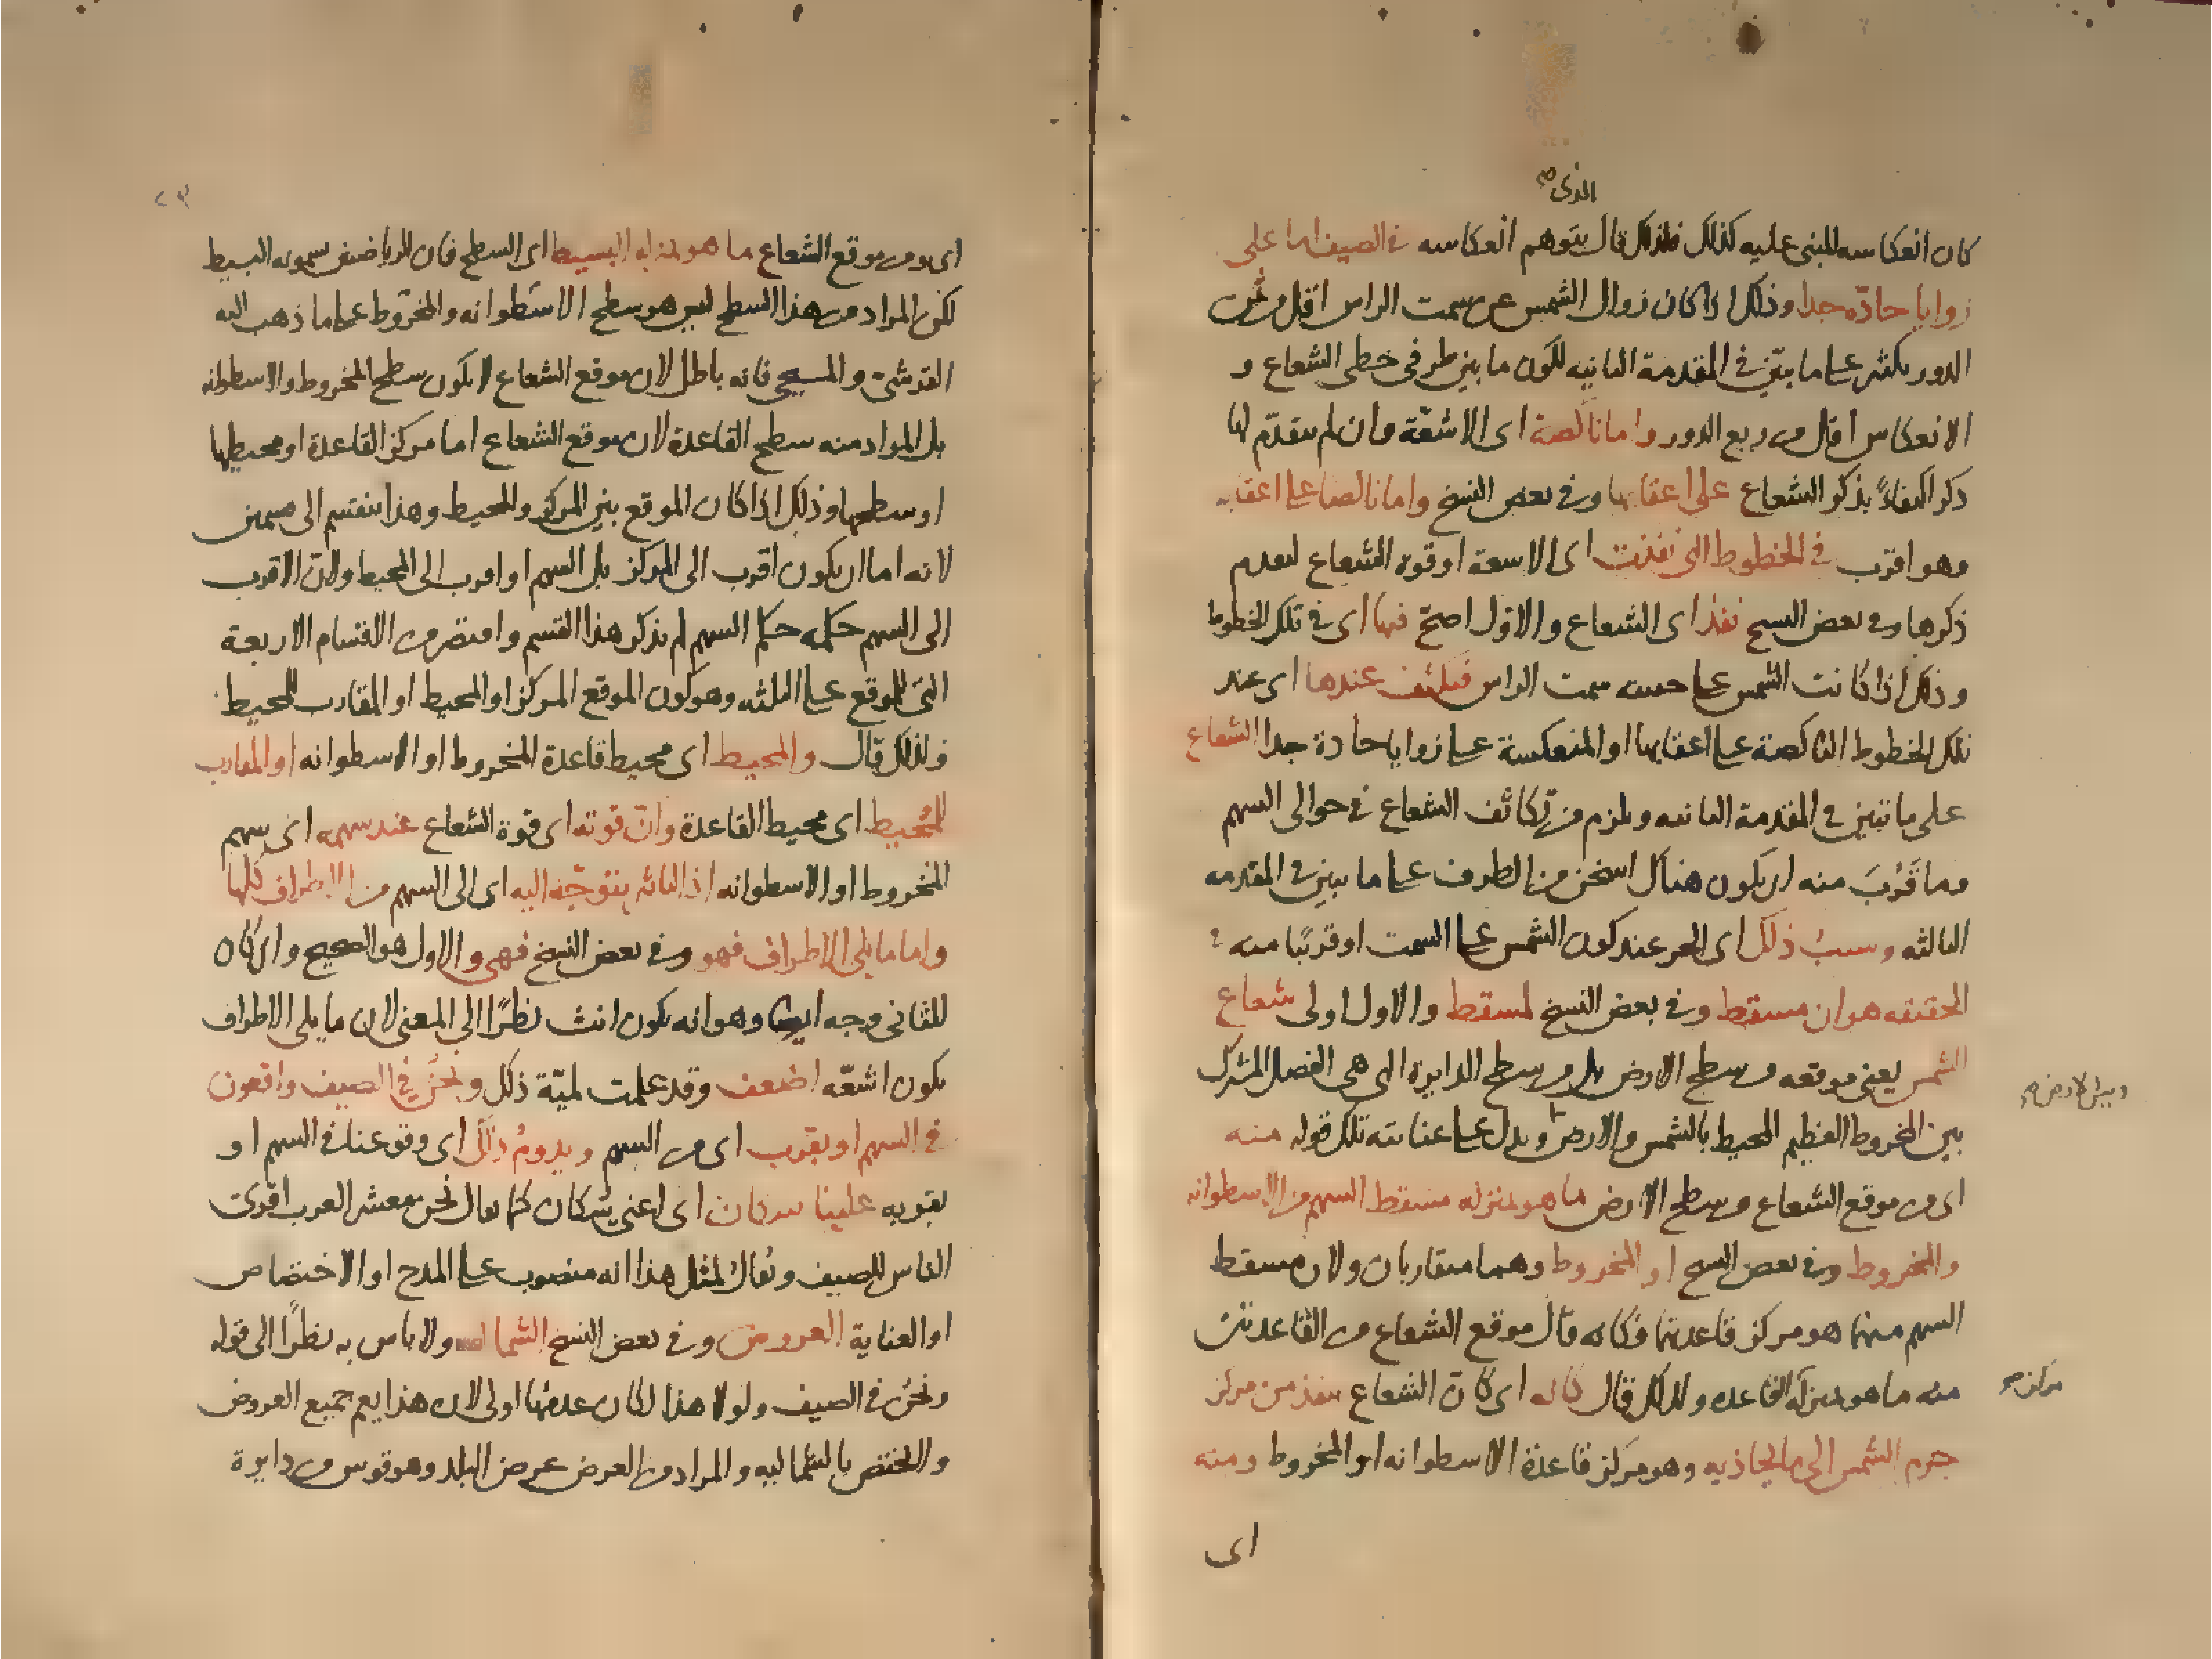 الذى صح
كان انعكاسه المبنى عليه كذلك فلذلك قال يتوهم انعكاسه فى الصيف اما على
زوايا حادّه جدا وذلك اذا كان زوال الشمس عن سمت الراس اقل من ثمن
الدور بكثير على ما بيّن فى المقدمة الثانيه لكون ما بين طرفى خطى الشعاع و
الانعكاس اقل من ربع الدور واما ناكصة اى الاشعّة وان لم يتقدّم لها
ذكر اكتفاءً بذكر الشعاع على اعقابها وفى بعض النسخ واما ناكصا على اعقابه
وهو اقرب فى الخطوط التى نفذت اى الاشعة او قوة الشعاع لتقدم
ذكرها وفى بعض النسخ نفذ اى الشعاع والاوّل اصحّ فيها اى فى تلك الخطوط
وذلك اذا كانت الشمس على سمت الراس فيكثف عندها اى عند
تلك الخطوط الناكصة على اعقابها او المنعكسة على زوايا حادة جدا الشعاع
على ما تبيّن فى المقدمة الثانيه ويلزم من تكاثف الشعاع فى حوالى السهم
وما قَرُبَ منه ان يكون هناك اسخن من الطرف على ما تبين فى المقدمه
الثالثه وسببُ ذلك اى الحر عند كون الشمس على السمت او قريبًا منه فى
الحقيقه هو ان مسقط وفى بعض النسخ لمسقط والاول اولى شعاع
الشمس يعنى موقعه من سطح الارض بل من سطح الدايرة التى هى الفصل المشترك
وبين الارض صح
بين المخروط العظيم المحيط بالشمس والارض ويدل على عنايته تلك قوله منه
اى من موقع الشعاع من سطح الارض ما هو بمنزله مسقط السهم من الاسطوانه
والمخروط وفى بعض النسخ او المخروط وهما متقاربان ولان مسقط
السهم منهما هو مركز قاعدتهما فكانه قال موقع الشعاع من القاعدتين
منه ما هو بمنزلة القاعده ولذلك قال كانه اى كانّ الشعاع ينفذ من مركز
مركز صح
جرم الشمس الى ما يحاذيه وهو مركز قاعدة الاسطوانه او المخروط ومنه
اى
اى ومن موقع الشعاع ما هو بمنزله البسيط اى السطح فان الرياضيين يسمونه البسيط
لكن المراد من هذا السطح ليس هو سطح الاسطوانه والمخروط على ما ذهب اليه
القرشىّ والمسيحى فانه باطل لان موقع الشعاع لا يكون سطح المخروط والاسطوانه
بل المراد منه سطح القاعدة لان موقع الشعاع اما مركز القاعدة او محيطها
او سطحها وذلك اذا كان الموقع بين المركز والمحيط وهذا ينقسم الى قسمين
لانه اما ان يكون اقرب الى المركز بل السهم او اقرب الى المحيط ولانّ الاقرب
الى السهم حكمه حكم السهم لم يذكر هذا القسم واقتصر من الاقسام الاربعة
التى للموقع على الثلثه وهو كون الموقع المركز او المحيط او المقارب للمحيط
فلذلك قال والمحيط اى محيط قاعدة المخروط او الاسطوانه او المقارب
للمُحيط اى محيط القاعدة وانّ قوته اى قوة الشعاع عند سهمه اى سهم
المخروط او الاسطوانه اذ التاثير يتوجّه اليه اى الى السهم من الاطراف كلها
واما ما يلى الاطراف فهو وفى بعض النسخ فهى والاول هو الصحيح وان كان
للثانى وجه ايضا وهو انه يكون انث نظرًا الى المعنى لان ما يلى الاطراف
يكون اشعّه اضعف وقد علمت لميّة ذلك ونحنُ فى الصيف واقعون
فى السهم او بقرب اى من السهم ويدومُ ذلك اى وقوعنا فى السهم او
بقربه علينا سكان اى اعنى سكان كما يقال نحن معشر العرب اقوى
الناس للصيف ويُقال لمثل هذا انه منصوب على المدح او الاختصاص
او العناية العروض وفى بعض النسخ الشماليه ولا باس به نظرًا الى قوله
ونحنُ فى الصيف ولولا هذا لكان عدمها اولى لان هذا يعم جميع العروض
ولا يختص بالشماليه والمراد من العرض عرض البلد وهو قوس من دايرة